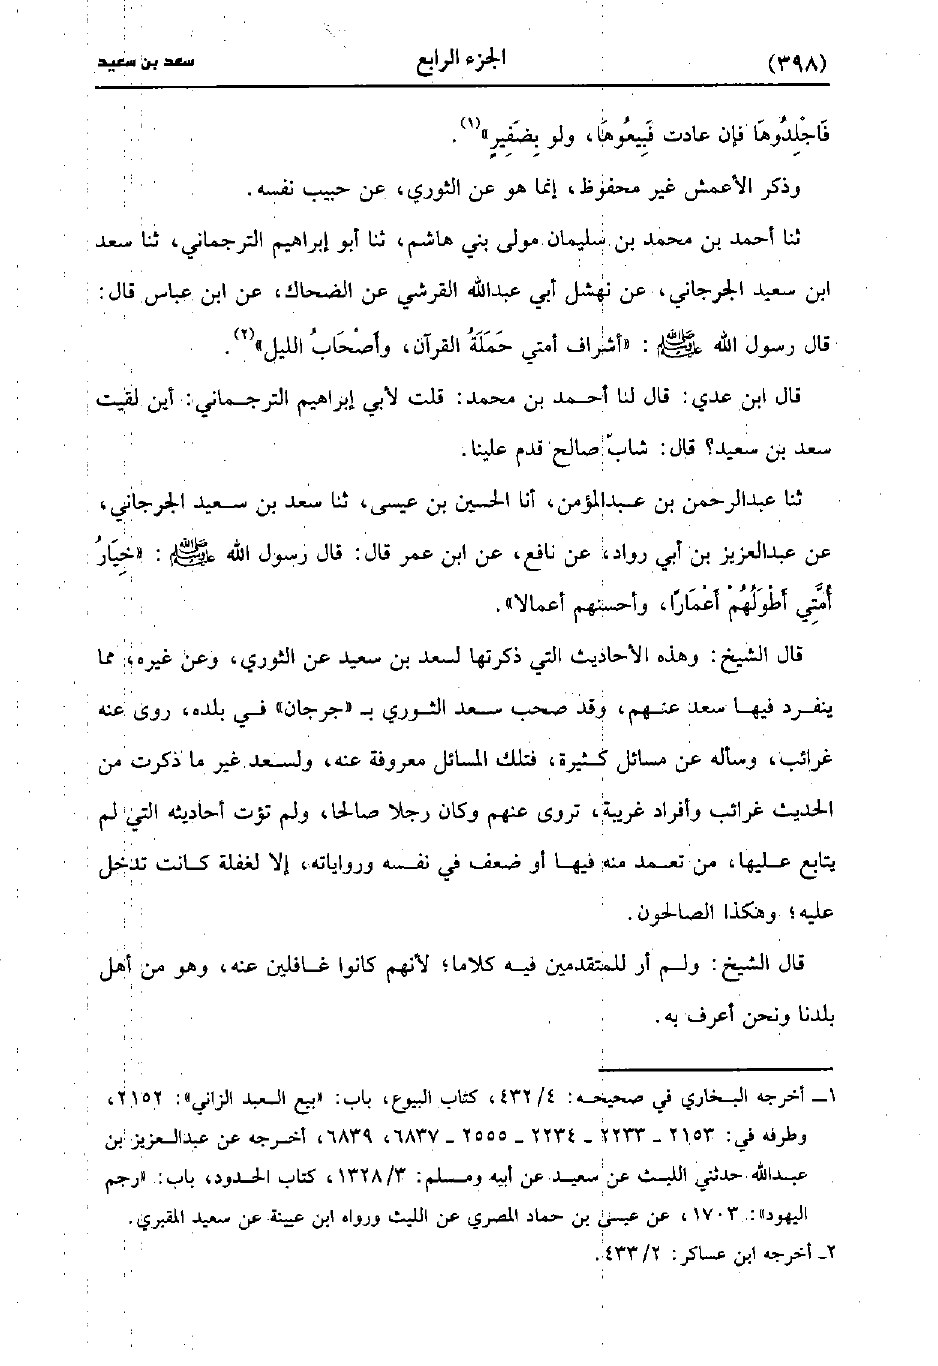 (٣٩٨) الجزء الرابع سعد بن سعيد
فَاجْلِدُوهَا فإن عادت فَبِيعُوهَا، ولو بِضَفِيرٍ»(١).
وذكر الأعمش غير محفوظ، إنما هو عن الثوري، عن حبيب نفسه.
ثنا أحمد بن محمد بن سليمان مولى بني هاشم، ثنا أبو إبراهيم الترجماني، ثنا سعد
ابن سعيد الجرجاني، عن نهشل أبي عبدالله القرشي عن الضحاك، عن ابن عباس قال:
قال رسول الله ﷺ : «أشراف أمتي حَمَلَةُ القرآن، وأَصْحَابُ الليل»(٢).
قال ابن عدي: قال لنا أحمد بن محمد: قلت لأبي إبراهيم الترجماني: أين لقيت
سعد بن سعيد؟ قال: شابّ صالح قدم علينا.
ثنا عبدالرحمن بن عبدالمؤمن، أنا الحسين بن عيسى، ثنا سعد بن سعيد الجرجاني،
عن عبدالعزيز بن أبي رواد، عن نافع، عن ابن عمر قال: قال رسول الله ﷺ : «خِيَارُ
أُمَّتِي أَطْوَلُهُمْ أَعْمَارًا، وأحسنهم أعمالا».
قال الشيخ: وهذه الأحاديث التي ذكرتها لسعد بن سعيد عن الثوري، وعن غيره، مما
ينفرد فيها سعد عنهم، وقد صحب سعد الثوري بـ «جرجان» في بلده، روى عنه
غرائب، وسأله عن مسائل كثيرة، فتلك المسائل معروفة عنه، ولسعد غير ما ذكرت من
الحديث غرائب وأفراد غريبة، تروى عنهم وكان رجلا صالحا، ولم تؤت أحاديثه التي لم
يتابع عليها، من تعمد منه فيها أو ضعف في نفسه ورواياته، إلا لغفلة كانت تدخل
عليه؛ وهكذا الصالحون.
قال الشيخ: ولم أر للمتقدمين فيه كلاما؛ لأنهم كانوا غافلين عنه، وهو من أهل
بلدنا ونحن أعرف به.
١ـ أخرجه البخاري في صحيحه: ٤/ ٤٣٢، كتاب البيوع، باب: «بيع العبد الزاني»: ٢١٥٢،
وطرفه في: ٢١٥٣ ـ ٢٢٣٣ ـ ٢٢٣٤ ـ ٢٥٥٥ ـ ٦٨٣٧، ٦٨٣٩، أخرجه عن عبدالعزيز بن
عبدالله حدثني الليث عن سعيد عن أبيه ومسلم: ٣/ ١٣٢٨، كتاب الحدود، باب: «رجم
اليهود»: ١٧٠٣، عن عيسى بن حماد المصري عن الليث ورواه ابن عيينة عن سعيد المقبري.
٢ـ أخرجه ابن عساكر: ٢/ ٤٣٣.